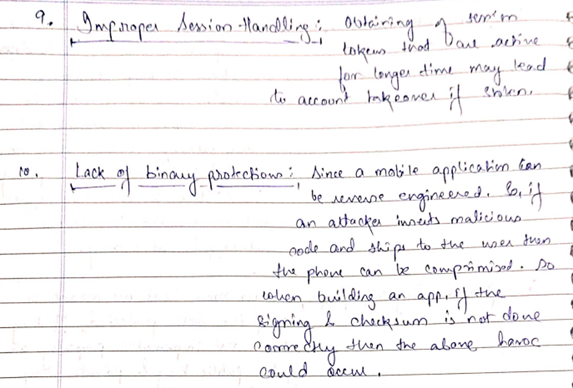 9. Improper Session-Handling : Obtaining of
tokens that are active
for longer time may lead
to account takeover if stolen.
10. Lack of binary protections : Since a mobile application can
be reverse engineered. So, if
an attacker inserts malicious
code and ships to the user then
the phone can be compromised. So
when building an app, if the
signing & checksum is not done
correctly then the above havoc
could occur.